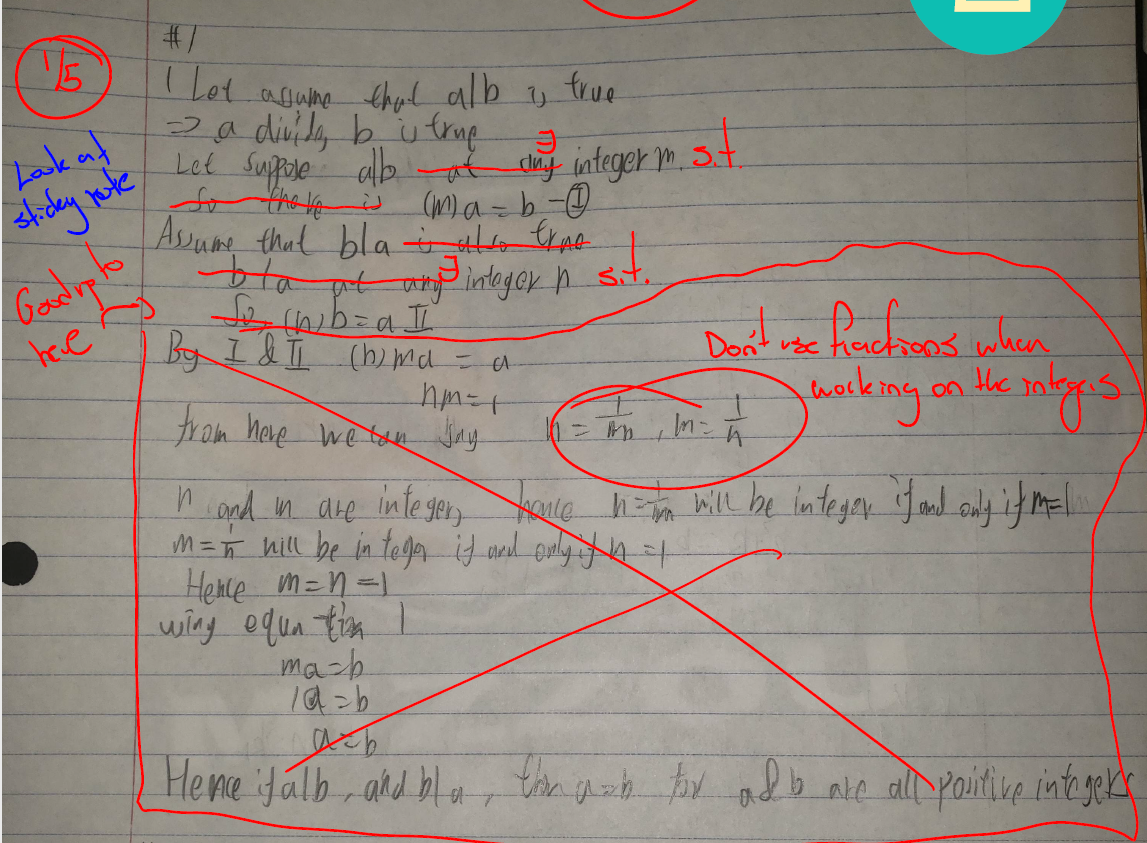 #1
1/5
1 Let assume that a|b is true
=> a divides b is true
Look at
sticky note
Let suppose a|b at any ∃ integer m. s.t.
So there is (m)a = b - Ⓘ
Assume that b|a is also true
b|a at any ∃ integer n s.t.
Good up to
here
So, (n)b = a II
By I & II (n)ma = a
nm = 1
Don't use fractions when
working on the integers
from here we can say n = 1/m, m = 1/n
n and m are integers, hence n = 1/m will be integer if and only if m=1
m = 1/n will be integer if and only if n = 1
Hence m = n = 1
using equation 1
ma = b
1a = b
a = b
Hence if a|b, and b|a, then a=b for a&b are all positive integers